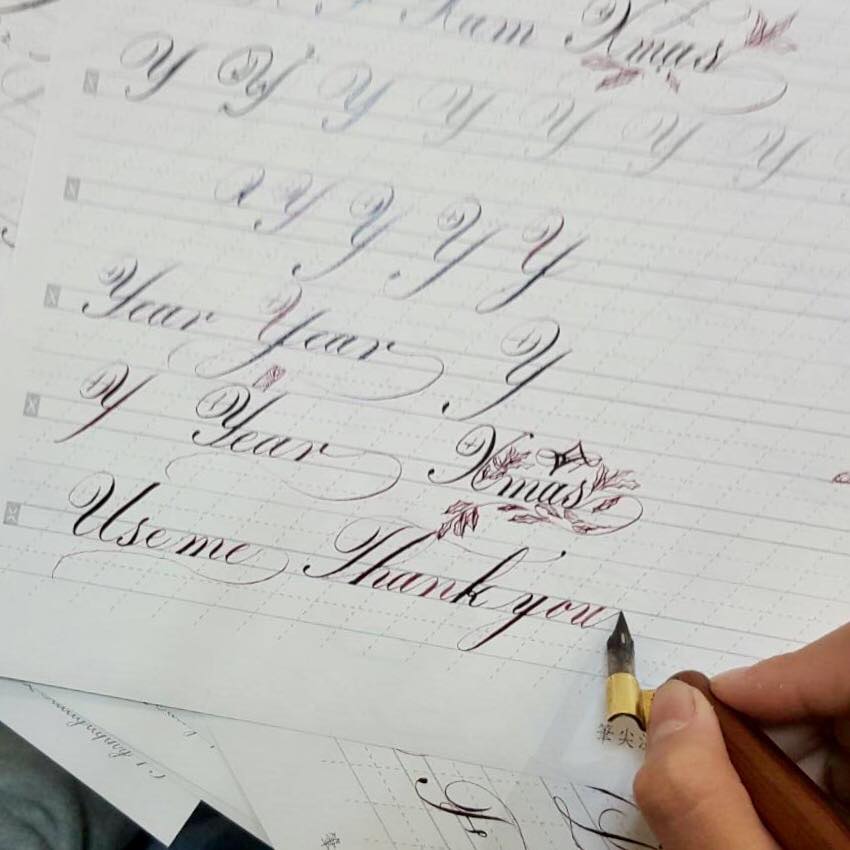 Xmas
Y Y Y Y Y Y Y
Y Y Y Y
Year Year Y
Y Year Xmas
Use me Thank you
筆尖